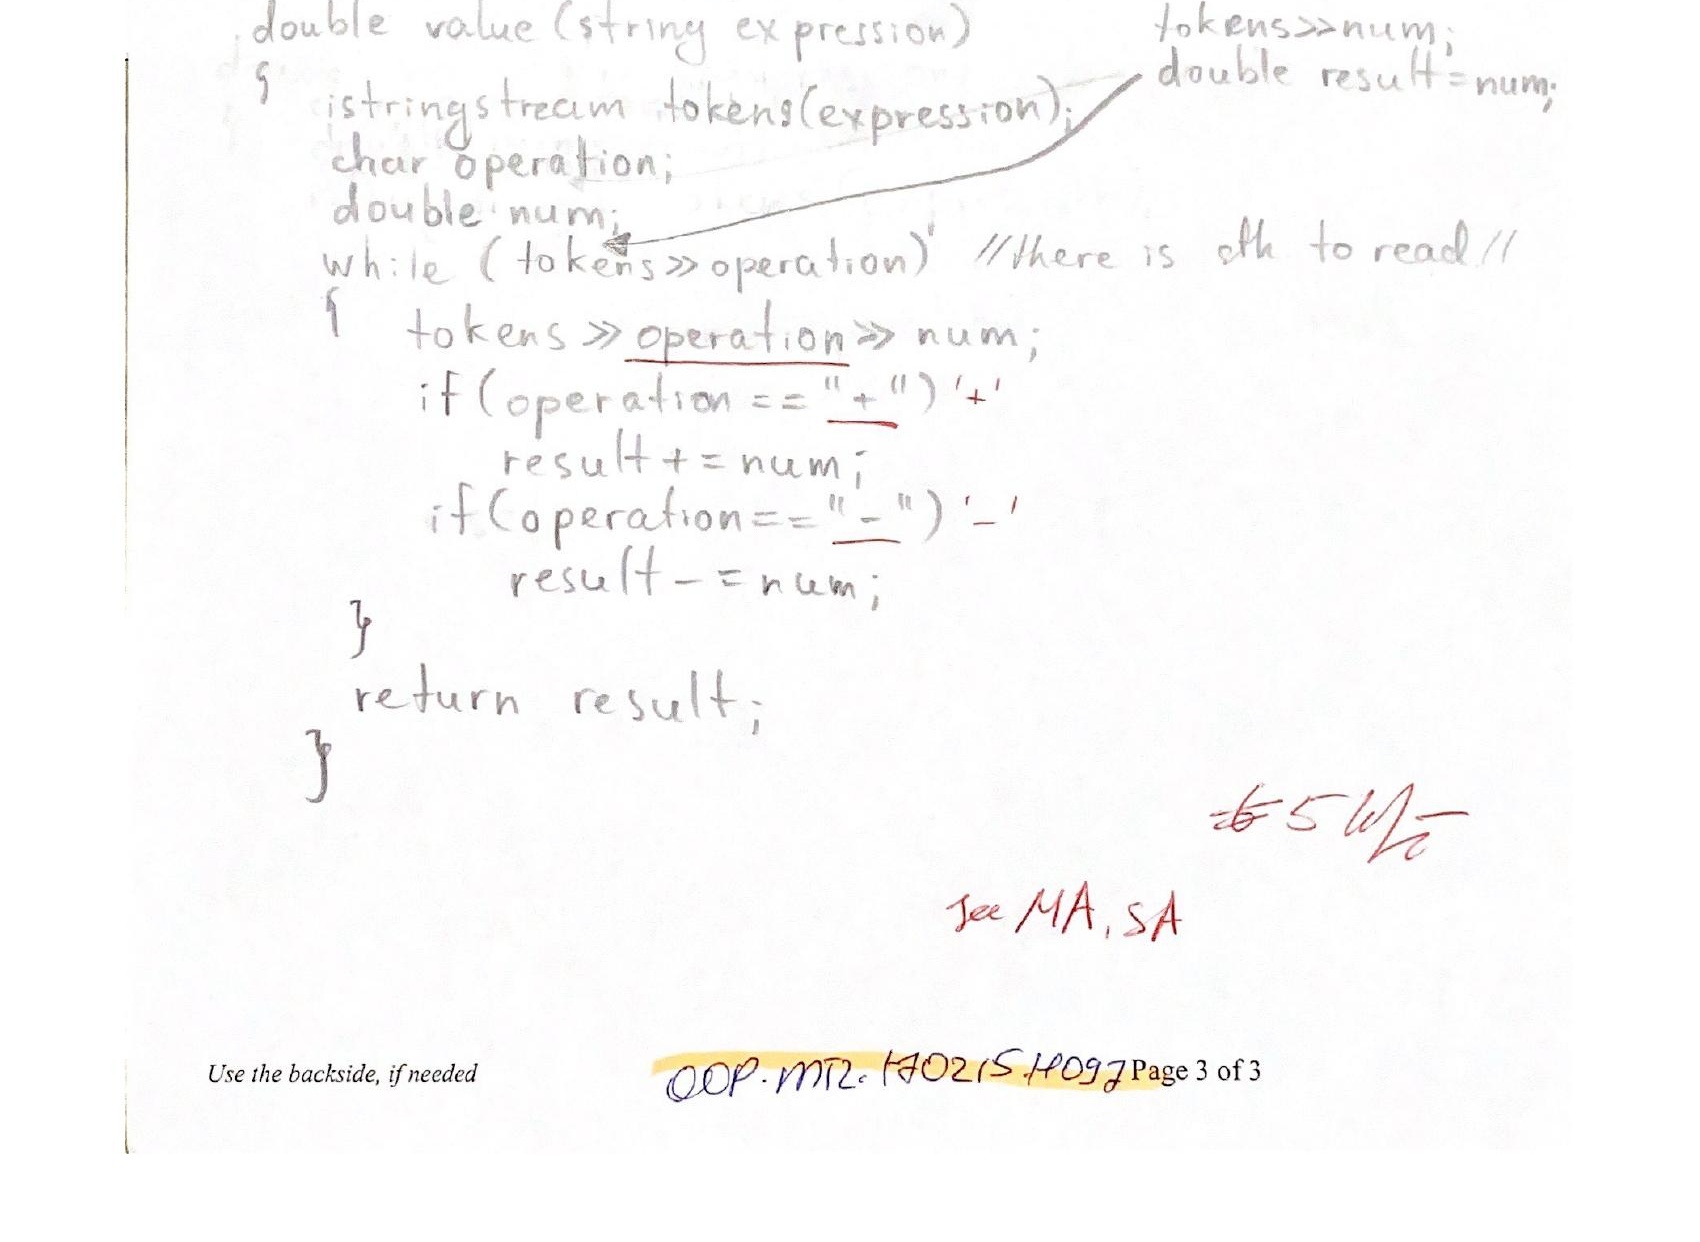 double value (string expression)
{
istringstream tokens(expression);
char operation;
double num;
tokens>>num;
double result=num;
while (tokens>>operation) //there is sth to read//
{
tokens >> operation >> num;
if (operation == "+") '+'
result += num;
if (operation == "-") '-'
result -= num;
}
return result;
}
6 5
See MA, SA
Use the backside, if needed
OOP.MT2.170215.H092 Page 3 of 3